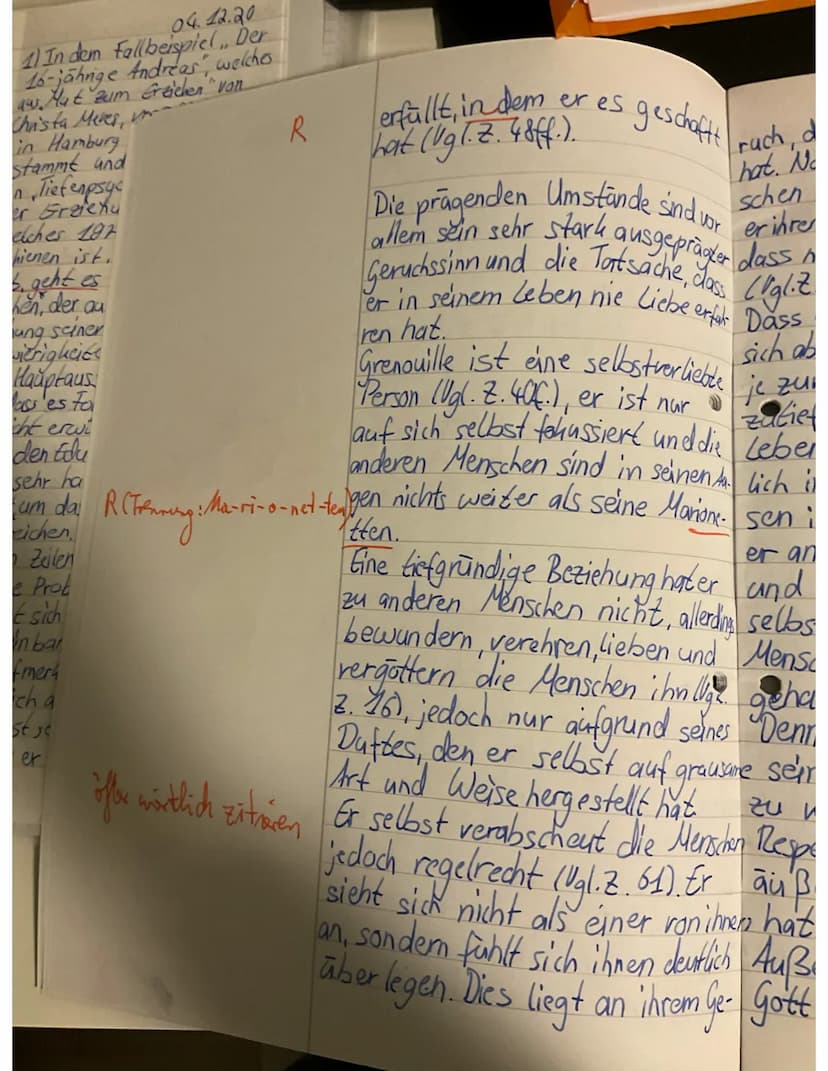 04.12.20
1) In dem Fallbeispiel „Der
16-jährige Andreas", welches
aus „Mut zum Erziehen" von
Christa Meves,
in Hamburg
stammt und
er Erziehu
elches 197
hienen ist.
geht es
der au
ung seiner
Hauptaus
dass es
den Edu
sehr ha
um da
eichen.
Zeilen
e Prob
t sich
inbar
fmerk
ich a
er
R
erfüllt, in dem er es geschafft
hat (Vgl. Z. 48ff.).
Die prägenden Umstände sind vor
allem sein sehr stark ausgeprägter
Geruchssinn und die Tatsache, dass
er in seinem Leben nie Liebe erfah
ren hat.
Grenouille ist eine selbstverliebte
Person (Vgl. Z. 40f.), er ist nur
auf sich selbst fokussiert und die
anderen Menschen sind in seinen Au-
R (Trennung: Ma-ri-o-net-ten)
gen nichts weiter als seine Marione-
tten.
Eine tiefgründige Beziehung hat er
zu anderen Menschen nicht, allerdings
bewundern, verehren, lieben und
vergöttern die Menschen ihn (Vgl.
Z. 16), jedoch nur aufgrund seines
Duftes, den er selbst auf grausame
Art und Weise hergestellt hat.
öfter wörtlich zitieren
Er selbst verabscheut die Menschen
jedoch regelrecht (Vgl. Z. 61). Er
sieht sich nicht als einer von ihnen
an, sondern fühlt sich ihnen deutlich
überlegen. Dies liegt an ihrem Ge-
ruch, d
hat. No
schen
er ihre
dass
(Vgl. Z
Dass
sich ab
je zu
zutief
Leber
lich i
sen i
er an
und
selbs
Mensc
geha
Denn
sein
zu
Respe
äuß
hat
Auße
Gott